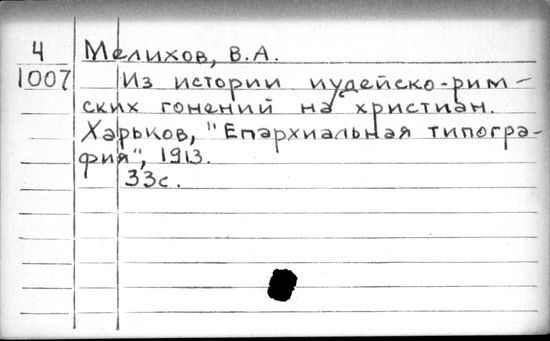 4 Мелихов, В.А.
1007 Из истории иудейско-рим-
ских гонений на христиан.
Харьков, "Епархиальная типогра-
фия", 1913.
33с.